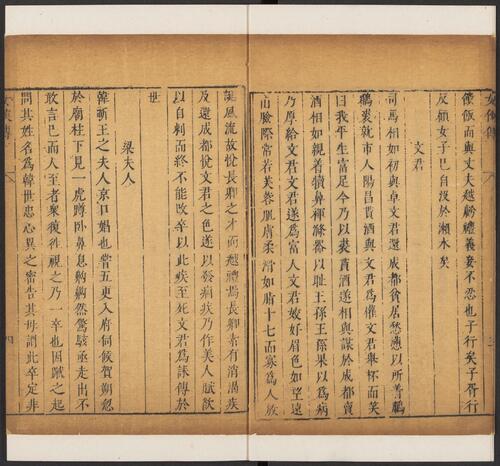 女俠傳
餽飯而與丈夫越虧禮義妾不忍也子行矣子胥行
反顧女子已自沒於瀨水矣
文君
司馬相如初與卓文君還成都貧居愁懣以所著鷫
鸘裘就市人陽昌貰酒與文君為懽文君舉杯而笑
曰我平生富足今乃以裘貰酒遂相與謀於成都賣
酒相如親着犢鼻褌滌器以耻王孫王孫果以為病
乃厚給文君文君遂為富人文君姣好眉色如望遠
山臉際常若芙蓉肌膚柔滑如脂十七而寡為人放
誕風流故悅長卿之才而越禮焉長卿素有消渴疾
及還成都悅文君之色遂以發痼疾乃作美人賦欲
以自刺而終不能改卒以此疾至死文君為誄傳於
世
梁夫人
韓蘄王之夫人京口娼也嘗五更入府伺候賀朔忽
於廟柱下見一虎蹲臥鼻息齁齁然驚駭亟走出不
敢言已而人至者衆復往視之乃一卒也因蹴之起
問其姓名為韓世忠心異之密告其母謂此卒定非
女俠傳
四